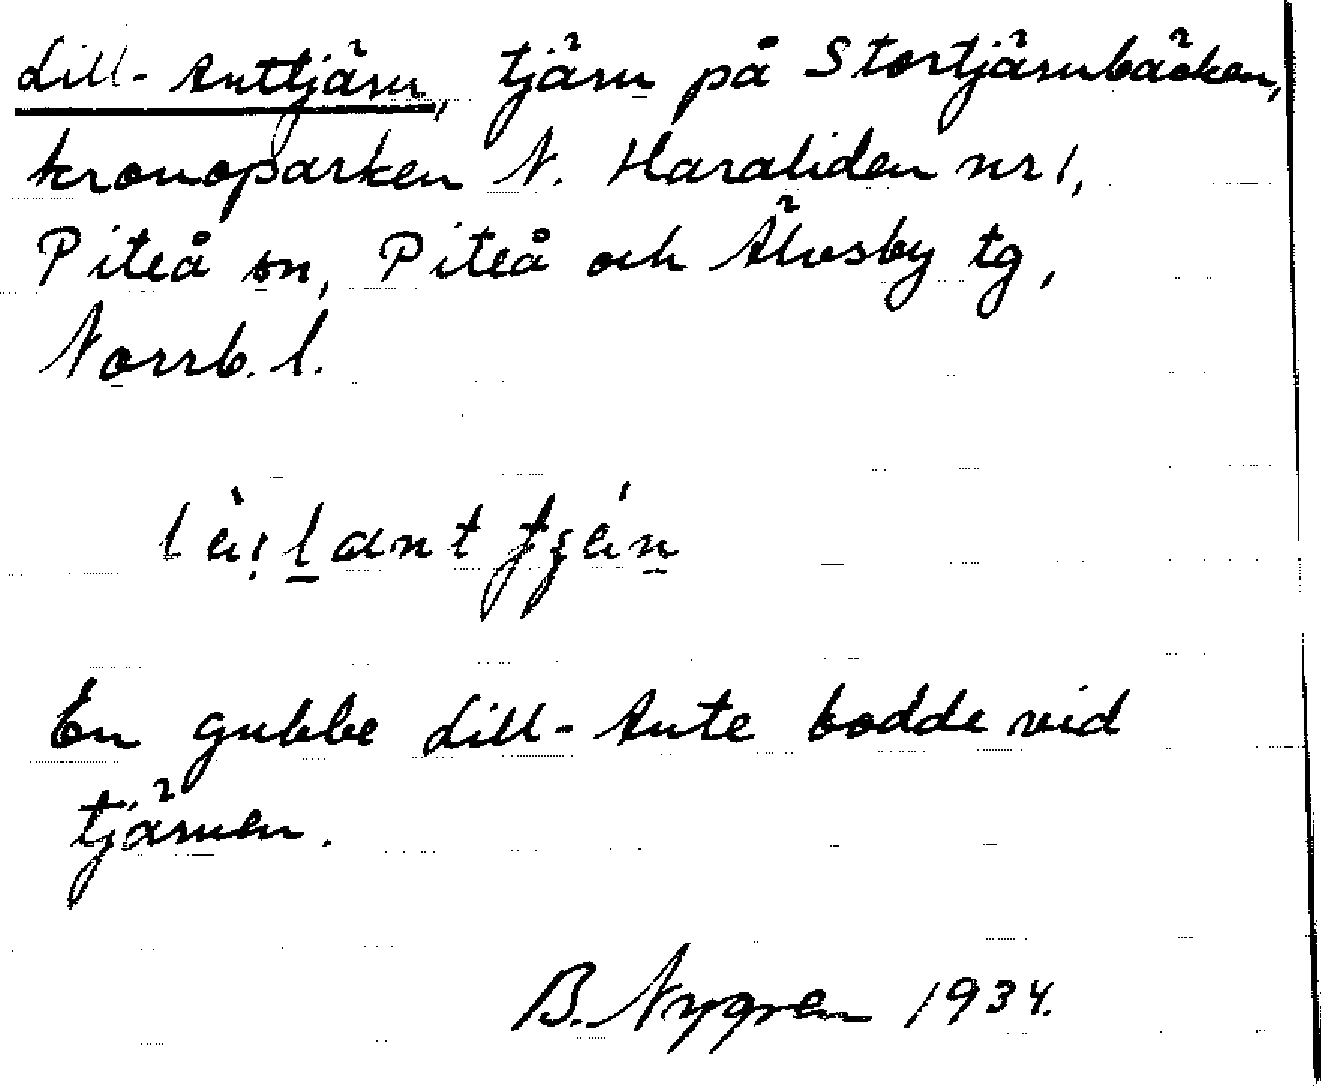 Lill-Anttjärn, tjärn på Stortjärnbäcken,
kronoparken N. Haraliden nr 1,
Piteå sn, Piteå och Älvsby tg,
Norrb. l.
En gubbe Lill-Ante bodde vid
tjärnen.
B. Nygren 1934.